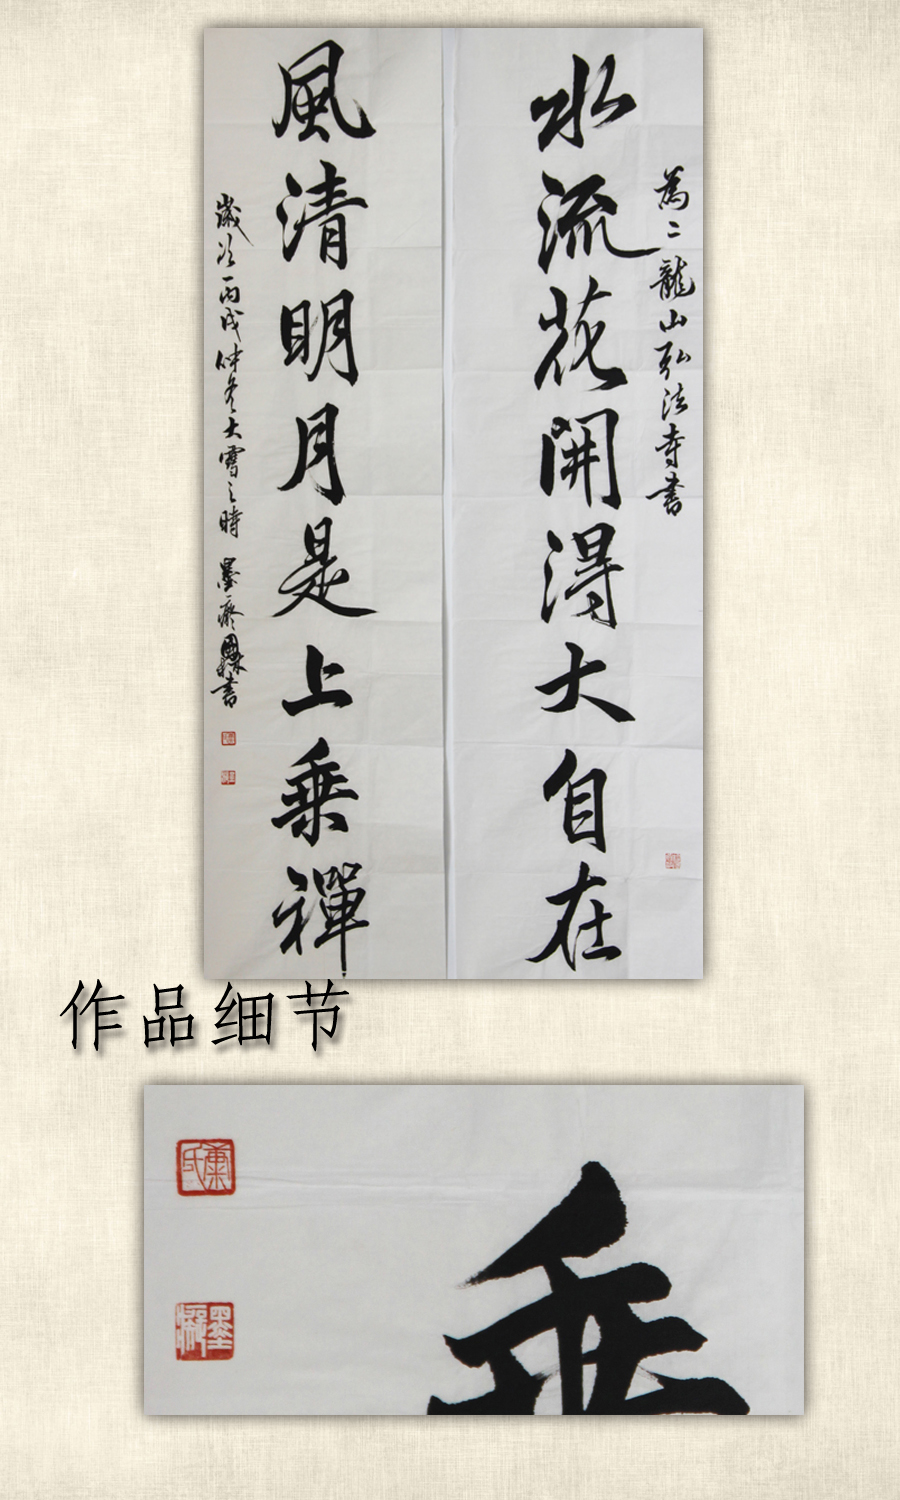 為二龍山弘法寺書
水流花開得大自在
風清明月是上乘禪
歲次丙戌仲冬大雪之時 墨癡國林書
作品细节
氏
墨癡
乘